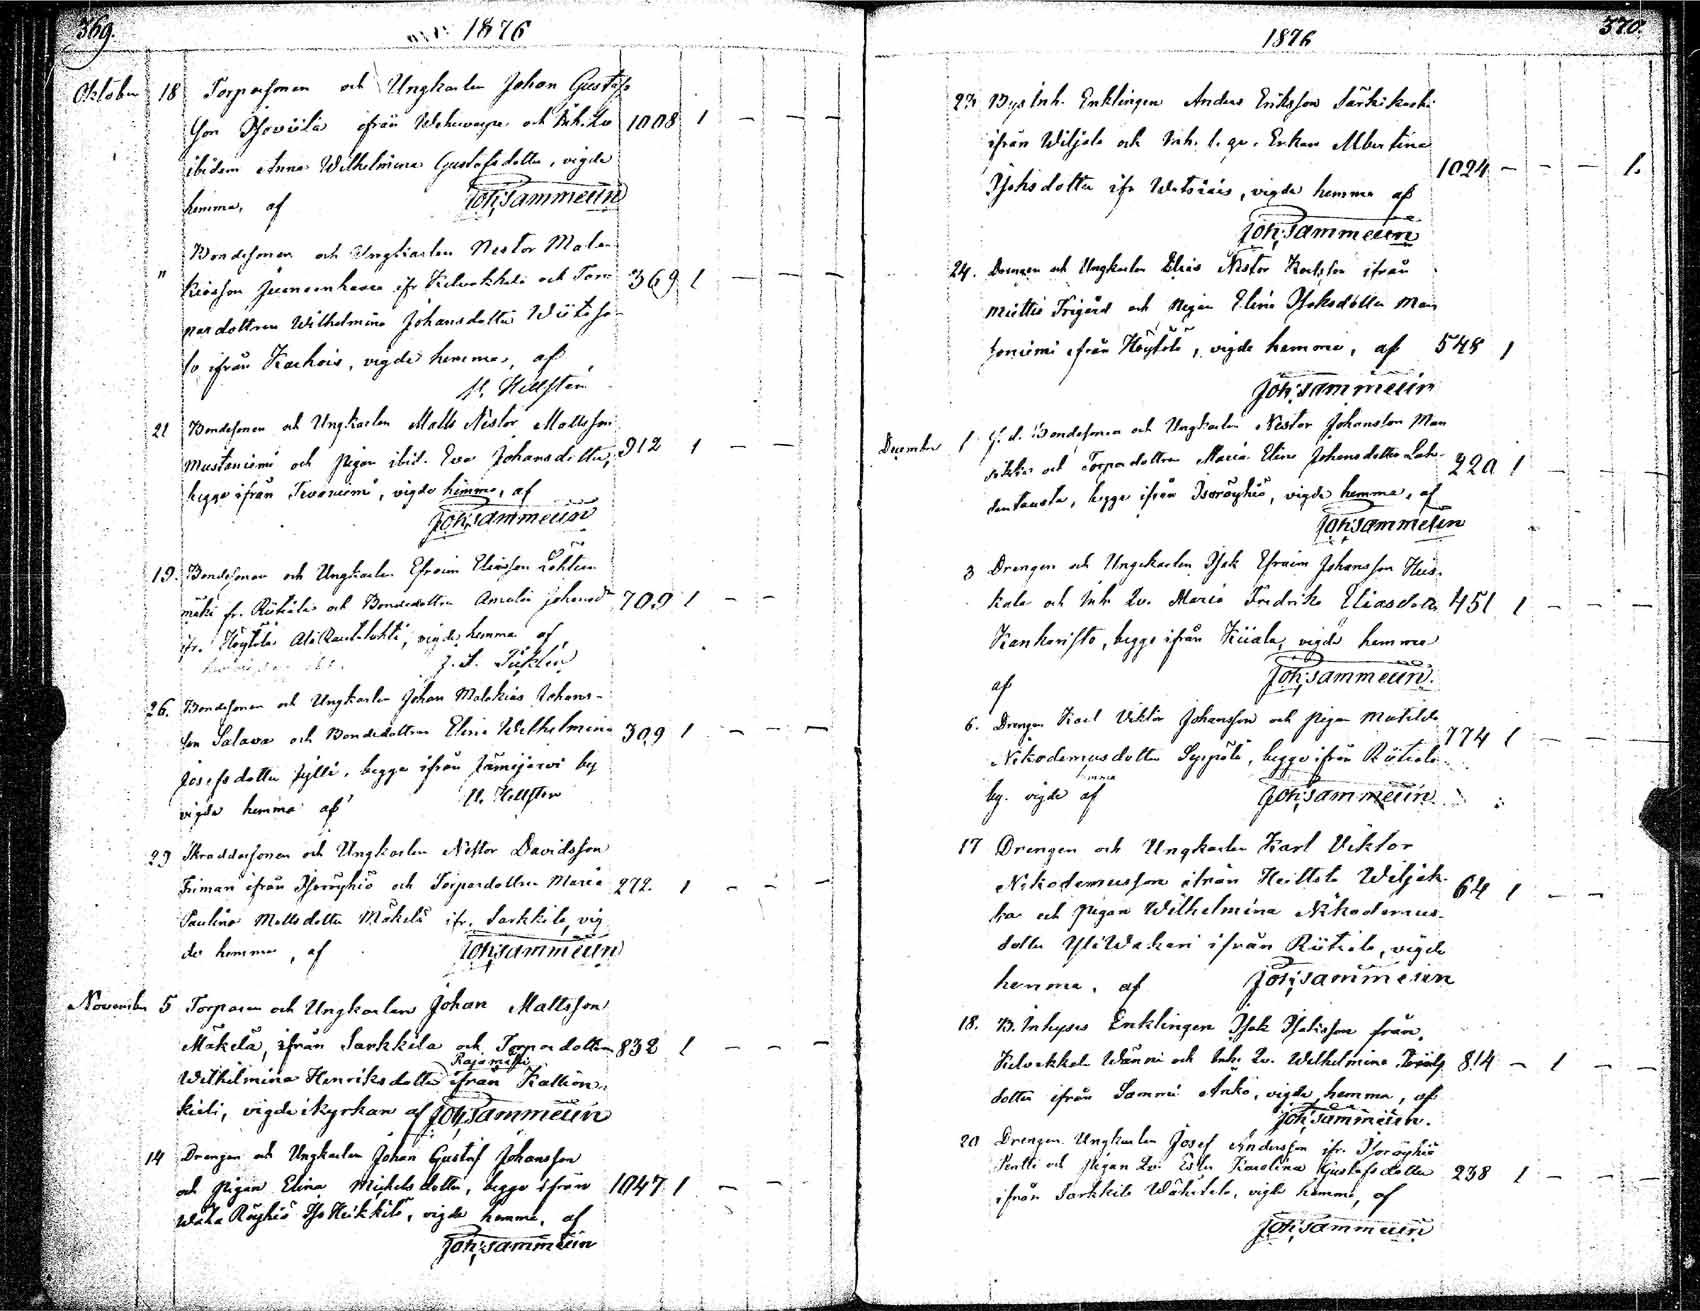 369.
1876
Oktober 18 Torparsonen och Ungkarlen Johan Gustafs
son Isoviita ifrån och Inh. Qv 1008 1 — — —
ibidem Anna Wilhelmina Gustafsdotter, vigde
hemma, af Joh: Sammelin
Bondesonen och Ungkarlen Nestor Mala-
" kiasson Juonenharra ifr Kilvakkala och Torp 369 1 — — —
pardottren Wilhelmina Johansdotter Wiitaha-
lo ifrån Karhois, vigde hemma, af
Hellsten
21 Bondesonen och Ungkarlen Matts Nestor Mattsson
Mustaniemi och pigan ibid. Eva Johansdotter, 912 1 — —
begge ifrån Tevaniemi, vigde hemma, af
Joh: Sammelin
19. Bondesonen och Ungkarlen Efraim Eliasson Lähteen
mäki fr. Riitiala och Bondedottren Amalia Johansd. 709 1 — —
ifr. Höytölä Ala Rautalahti, vigde hemma af
26. Bondesonen och Ungkarlen Johan Malakias Johans-
son Salava och Bondedottren Elina Wilhelmina 309 1 — — —
Josefsdotter Jylli, begge ifrån Jämijärvi by
vigde hemma af Hellsten
29 Skraddarsonen och Ungkarlen Nestor Davidsson
Friman ifrån Isoröyhiö och Torpardottren Maria 272. 1 — — —
Paulina Mattsdotter Mäkelä ifr. Sarkkila, vig
da hemma, af Joh: Sammelin
November 5 Torparen och Ungkarlen Johan Mattsson
Mäkelä, ifrån Sarkkila och Torpardottren 832 1 — — —
Rajamäki
Wilhelmina Henriksdotter ifrån Kallion-
kieli, vigde i kyrkan af Joh: Sammelin
14 Drengen och Ungkarlen Johan Gustaf Johansson
och pigan Elina Mickelsdotter, begge ifrån 1047 1 — —
Wäha Röyhiö Iso Heikkilä, vigde hemma, af
Joh: Sammelin
370.
1876
23 Bys Inh. Enklingen Anders Eriksson Särkikoski
ifrån Wiljala och Inh. l. qv. Enkan Albertina
Isaksdotter ifr Watsiais, vigde hemma af 1024 — — — 1.
Joh: Sammelin
24. Drengen och Ungkarlen Elias Nestor Karlsson ifrån
Frigård och Pigan Elina Isaksdotter Man
soniemi ifrån Höytölä, vigde hemma, af 548 1
Joh: Sammelin
December 1 f. d. Bondesonen och Ungkarlen Nestor Johansson Man
sikka och Torpardottren Maria Elina Johansdotter Lah- 220 1 — — —
dentausta, begge ifrån Isoröyhiö, vigde hemma, af
Joh: Sammelin
3 Drengen och Ungkarlen Isak Efraim Johansson Heis-
kala och Inh. Qv. Maria Fredrika Eliasdotter 451 1 — — —
Kankaristo, begge ifrån Kiiala, vigde hemma
af Joh: Sammelin.
6. Drengen Karl Viktor Johansson och pigan Matilda
Nikodemusdotter Seppälä, begge ifrån Riitiala 774 1 — — —
by. vigde hemma af Joh: Sammelin.
17 Drengen och Ungkarlen Karl Viktor
Nikodemusson ifrån Heittola Wiljak- 64 1 — —
ka och pigan Wilhelmina Nikodemus-
dotter Yli Wakeri ifrån Riitiala, vigde
hemma, af Joh: Sammelin
18. B. Inhyses Enklingen Isak Isaksson från
Kilvakkala Wänni och Inh. Qv. Wilhelmina 814 — 1 — —
dotter ifrån Sammi Anko, vigde hemma, af
Joh: Sammelin.
20 Drengen Ungkarlen Josef Andersson ifr. Isoröyhiö
Pentti och pigan Qv. Ester Karolina Gustafsdotter 238 1 — — —
ifrån Sarkkila Wähätalo, vigde hemma, af
Joh: Sammelin